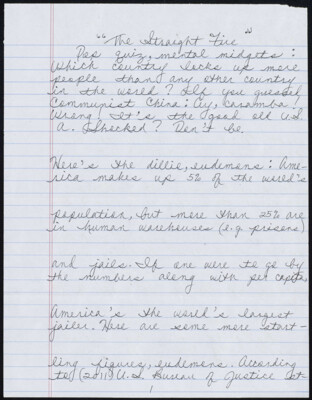 "The Straight Fire"
Pos quiz, mental midgets:
Which country locks up more
people than any other country
in the world? If you guessed
Communist China: Ay, caramba!
Wrong! It's the good old U.S.
A. Shocked? Don't be.
Here's the dillie, eudemons: Ame-
rica makes up 5% of the world's
population, but more than 25% are
in human warehouses (e.g. prisons)
and jails. If one were to go by
the numbers along with per capita,
America's the world's largest
jailer. Here are some more start-
ling figures, eudemons. According
to (2011) U.S. Bureau of Justice st-
1